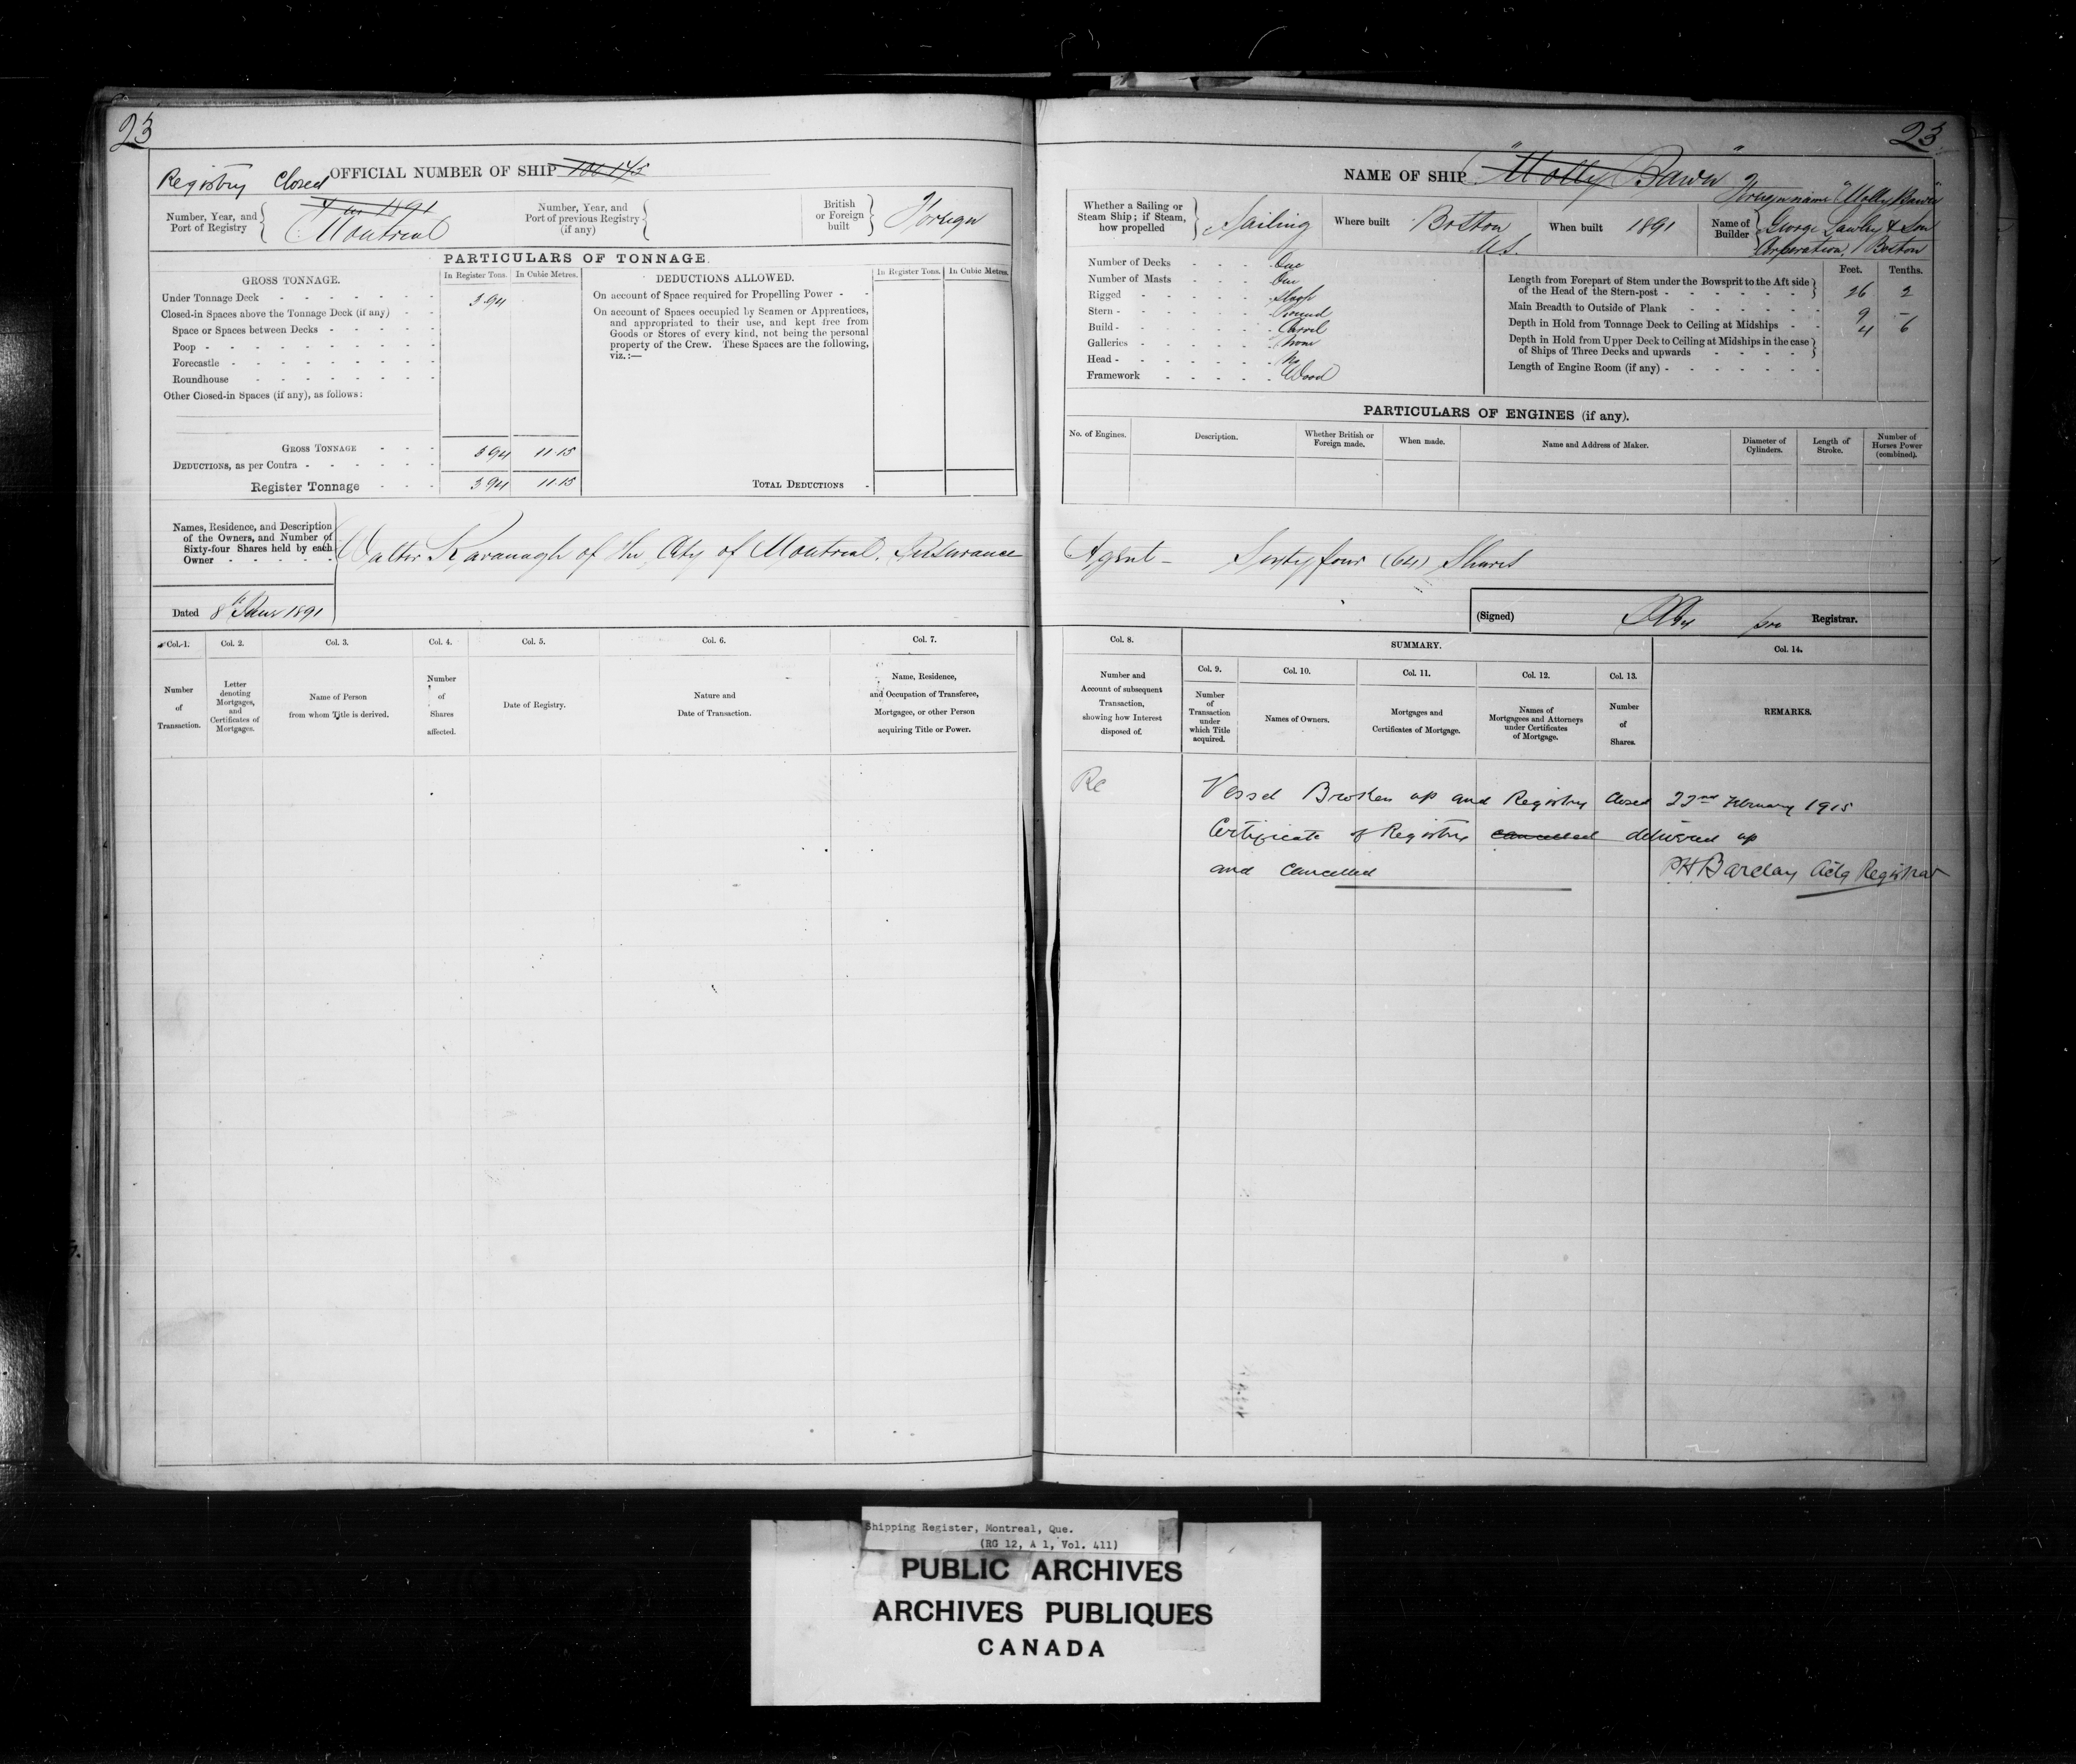 23
Registry Closed OFFICIAL NUMBER OF SHIP
Number, Year, and Port of Registry { 1891 Montreal
Number, Year, and Port of previous Registry (if any) {
British or Foreign built } Foreign
PARTICULARS OF TONNAGE.
GROSS TONNAGE.
In Register Tons. In Cubic Metres.
Under Tonnage Deck - 3.94
Closed-in Spaces above the Tonnage Deck (if any) -
Space or Spaces between Decks -
Poop -
Forecastle -
Roundhouse -
Other Closed-in Spaces (if any), as follows:
GROSS TONNAGE - 3.94 11.15
DEDUCTIONS, as per Contra -
Register Tonnage - 3.94 11.15
DEDUCTIONS ALLOWED.
In Register Tons. In Cubic Metres.
On account of Space required for Propelling Power -
On account of Spaces occupied by Seamen or Apprentices,
and appropriated to their use, and kept free from
Goods or Stores of every kind, not being the personal
property of the Crew. These Spaces are the following,
viz.:—
TOTAL DEDUCTIONS -
Names, Residence, and Description
of the Owners, and Number of
Sixty-four Shares held by each
Owner -
Walter Kavanagh of the City of Montreal, Insurance
Dated 8th June 1891
Col. 1. Col. 2. Col. 3. Col. 4. Col. 5. Col. 6. Col. 7.
Number of Transaction.
Letter denoting Mortgages, and Certificates of Mortgages.
Name of Person from whom Title is derived.
Number of Shares affected.
Date of Registry.
Nature and Date of Transaction.
Name, Residence, and Occupation of Transferee, Mortgagee, or other Person acquiring Title or Power.
23
NAME OF SHIP "Molly Bawn" Foreign name "Molly Bawn"
Whether a Sailing or Steam Ship; if Steam, how propelled } Sailing
Where built Boston U.S.
When built 1891
Name of Builder } George Lawley & Son Corporation, Boston
Number of Decks - One
Number of Masts - One
Rigged - Sloop
Stern - Round
Build - Carvel
Galleries - None
Head - No
Framework - Wood
Feet. Tenths.
Length from Forepart of Stem under the Bowsprit to the Aft side of the Head of the Stern-post - 26 2
Main Breadth to Outside of Plank - 9 -
Depth in Hold from Tonnage Deck to Ceiling at Midships - 4 6
Depth in Hold from Upper Deck to Ceiling at Midships in the case of Ships of Three Decks and upwards -
Length of Engine Room (if any) -
PARTICULARS OF ENGINES (if any).
No. of Engines. Description. Whether British or Foreign made. When made. Name and Address of Maker. Diameter of Cylinders. Length of Stroke. Number of Horses Power (combined).
Agent - Sixty four (64) Shares
(Signed) pro Registrar.
Col. 8. SUMMARY. Col. 14.
Col. 9. Col. 10. Col. 11. Col. 12. Col. 13.
Number and Account of subsequent Transaction, showing how Interest disposed of.
Number of Transaction under which Title acquired.
Names of Owners.
Mortgages and Certificates of Mortgage.
Names of Mortgagees and Attorneys under Certificates of Mortgage.
Number of Shares.
REMARKS.
Rc
Vessel Broken up and Registry Closed 22nd February 1915
Certificate of Registry cancelled delivered up
and cancelled PH Barclay Actg Registrar
Shipping Register, Montreal, Que.
(RG 12, A 1, Vol. 411)
PUBLIC ARCHIVES
ARCHIVES PUBLIQUES
CANADA